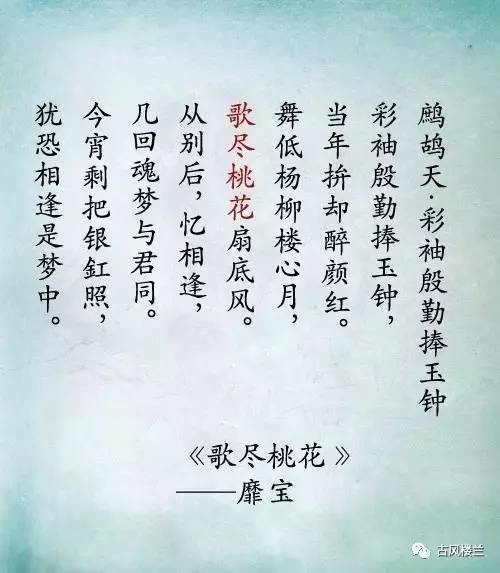 鹧鸪天·彩袖殷勤捧玉钟
彩袖殷勤捧玉钟，
当年拚却醉颜红。
舞低杨柳楼心月，
歌尽桃花扇底风。
从别后，忆相逢，
几回魂梦与君同。
今宵剩把银釭照，
犹恐相逢是梦中。
《歌尽桃花 》
——靡宝
古风楼兰